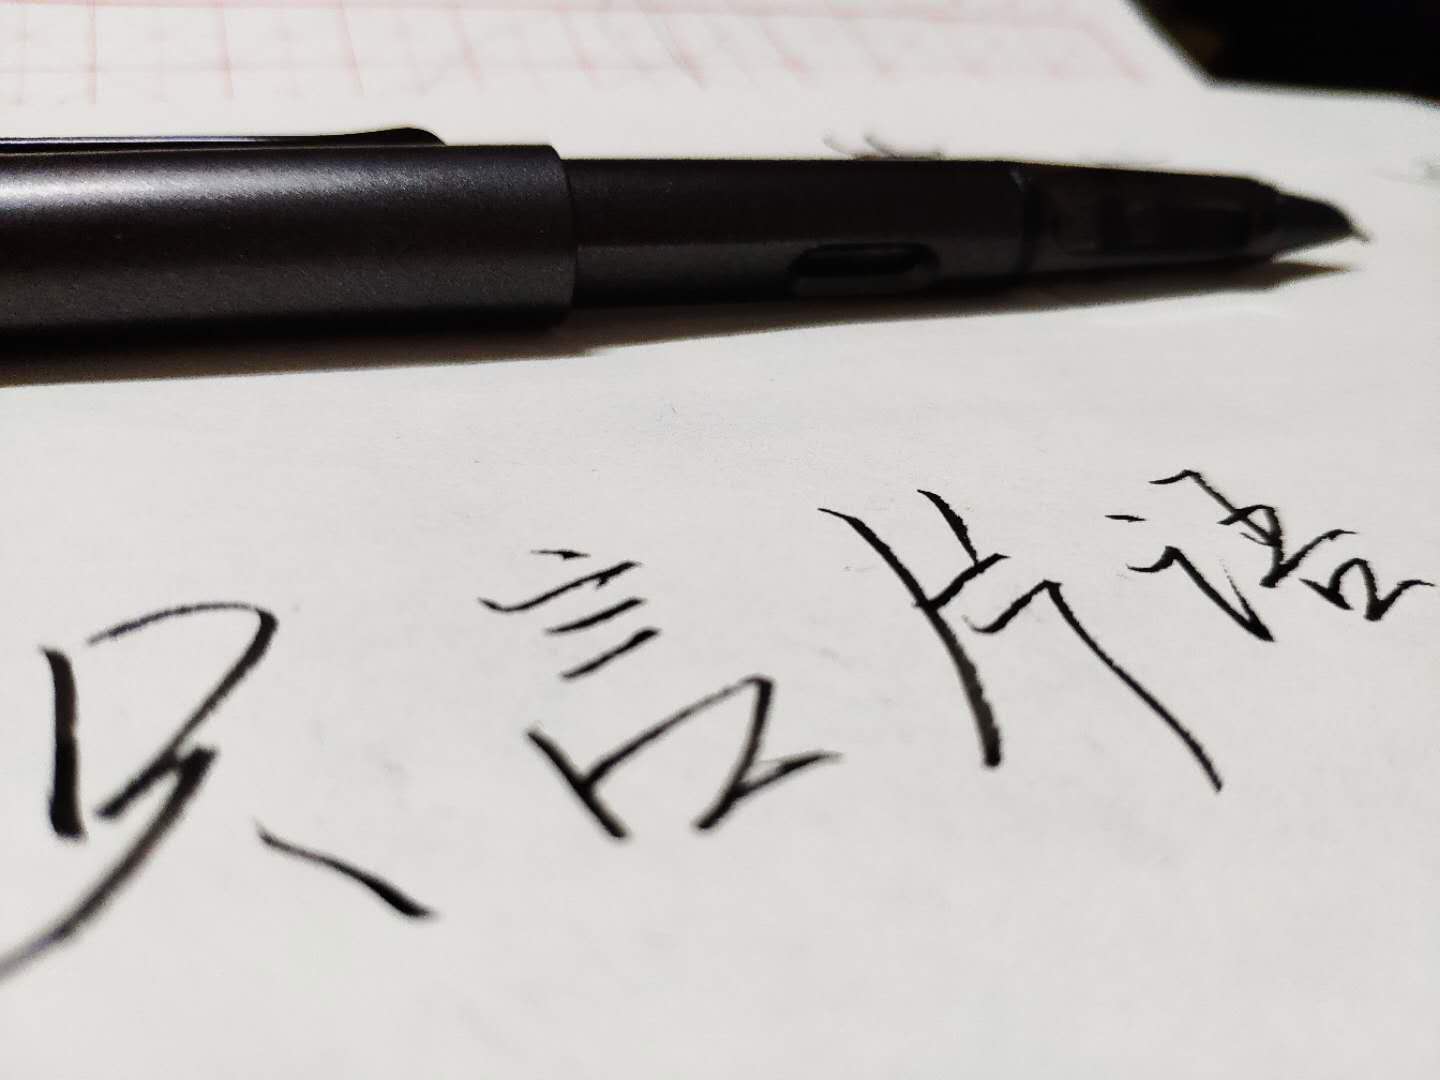 只言片语